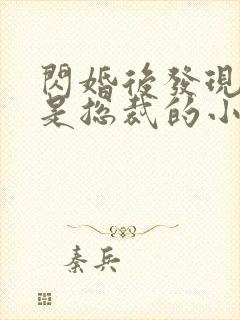 閃婚後發現
是總裁的小
秦兵